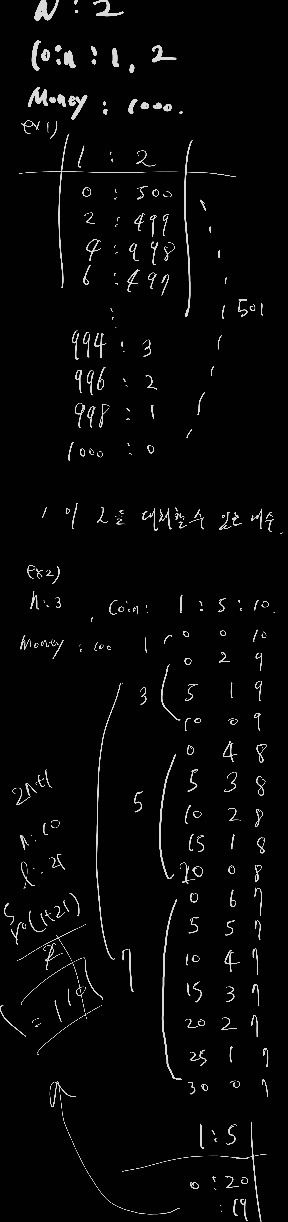 N : 2
Coin : 1, 2
Money : 1000.
ex1)
1 : 2
0 : 500
2 : 499
4 : 498
6 : 497
:
501
994 : 3
996 : 2
998 : 1
1000 : 0
1이 2를 대체할 수 있는 개수.
ex2)
n : 3 , Coin : 1 : 5 : 10.
Money : 100
1
0 0 10
3
0 2 9
5 1 9
10 0 9
5
0 4 8
5 3 8
10 2 8
15 1 8
20 0 8
7
0 6 7
5 5 7
10 4 7
15 3 7
20 2 7
25 1 7
30 0 7
2n+1
n : 10
l : 21
(1+21)
2
1 : 5
0 : 20
: 19